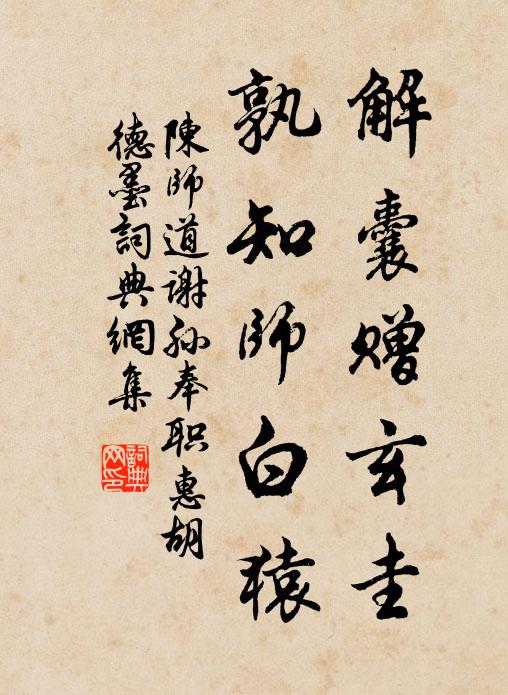 解囊赠玄圭
孰知師白猿
陳師道謝孙奉职惠胡
德墨詞典網集
詞典网印